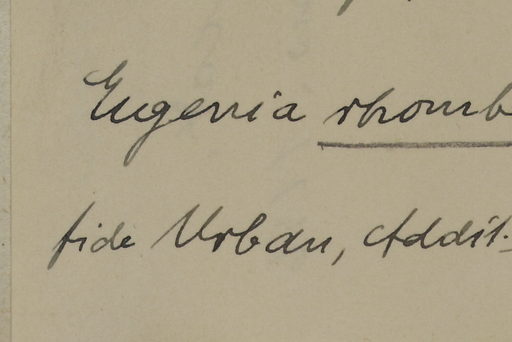 Eugenia rhomb
fide Urban, Addit.